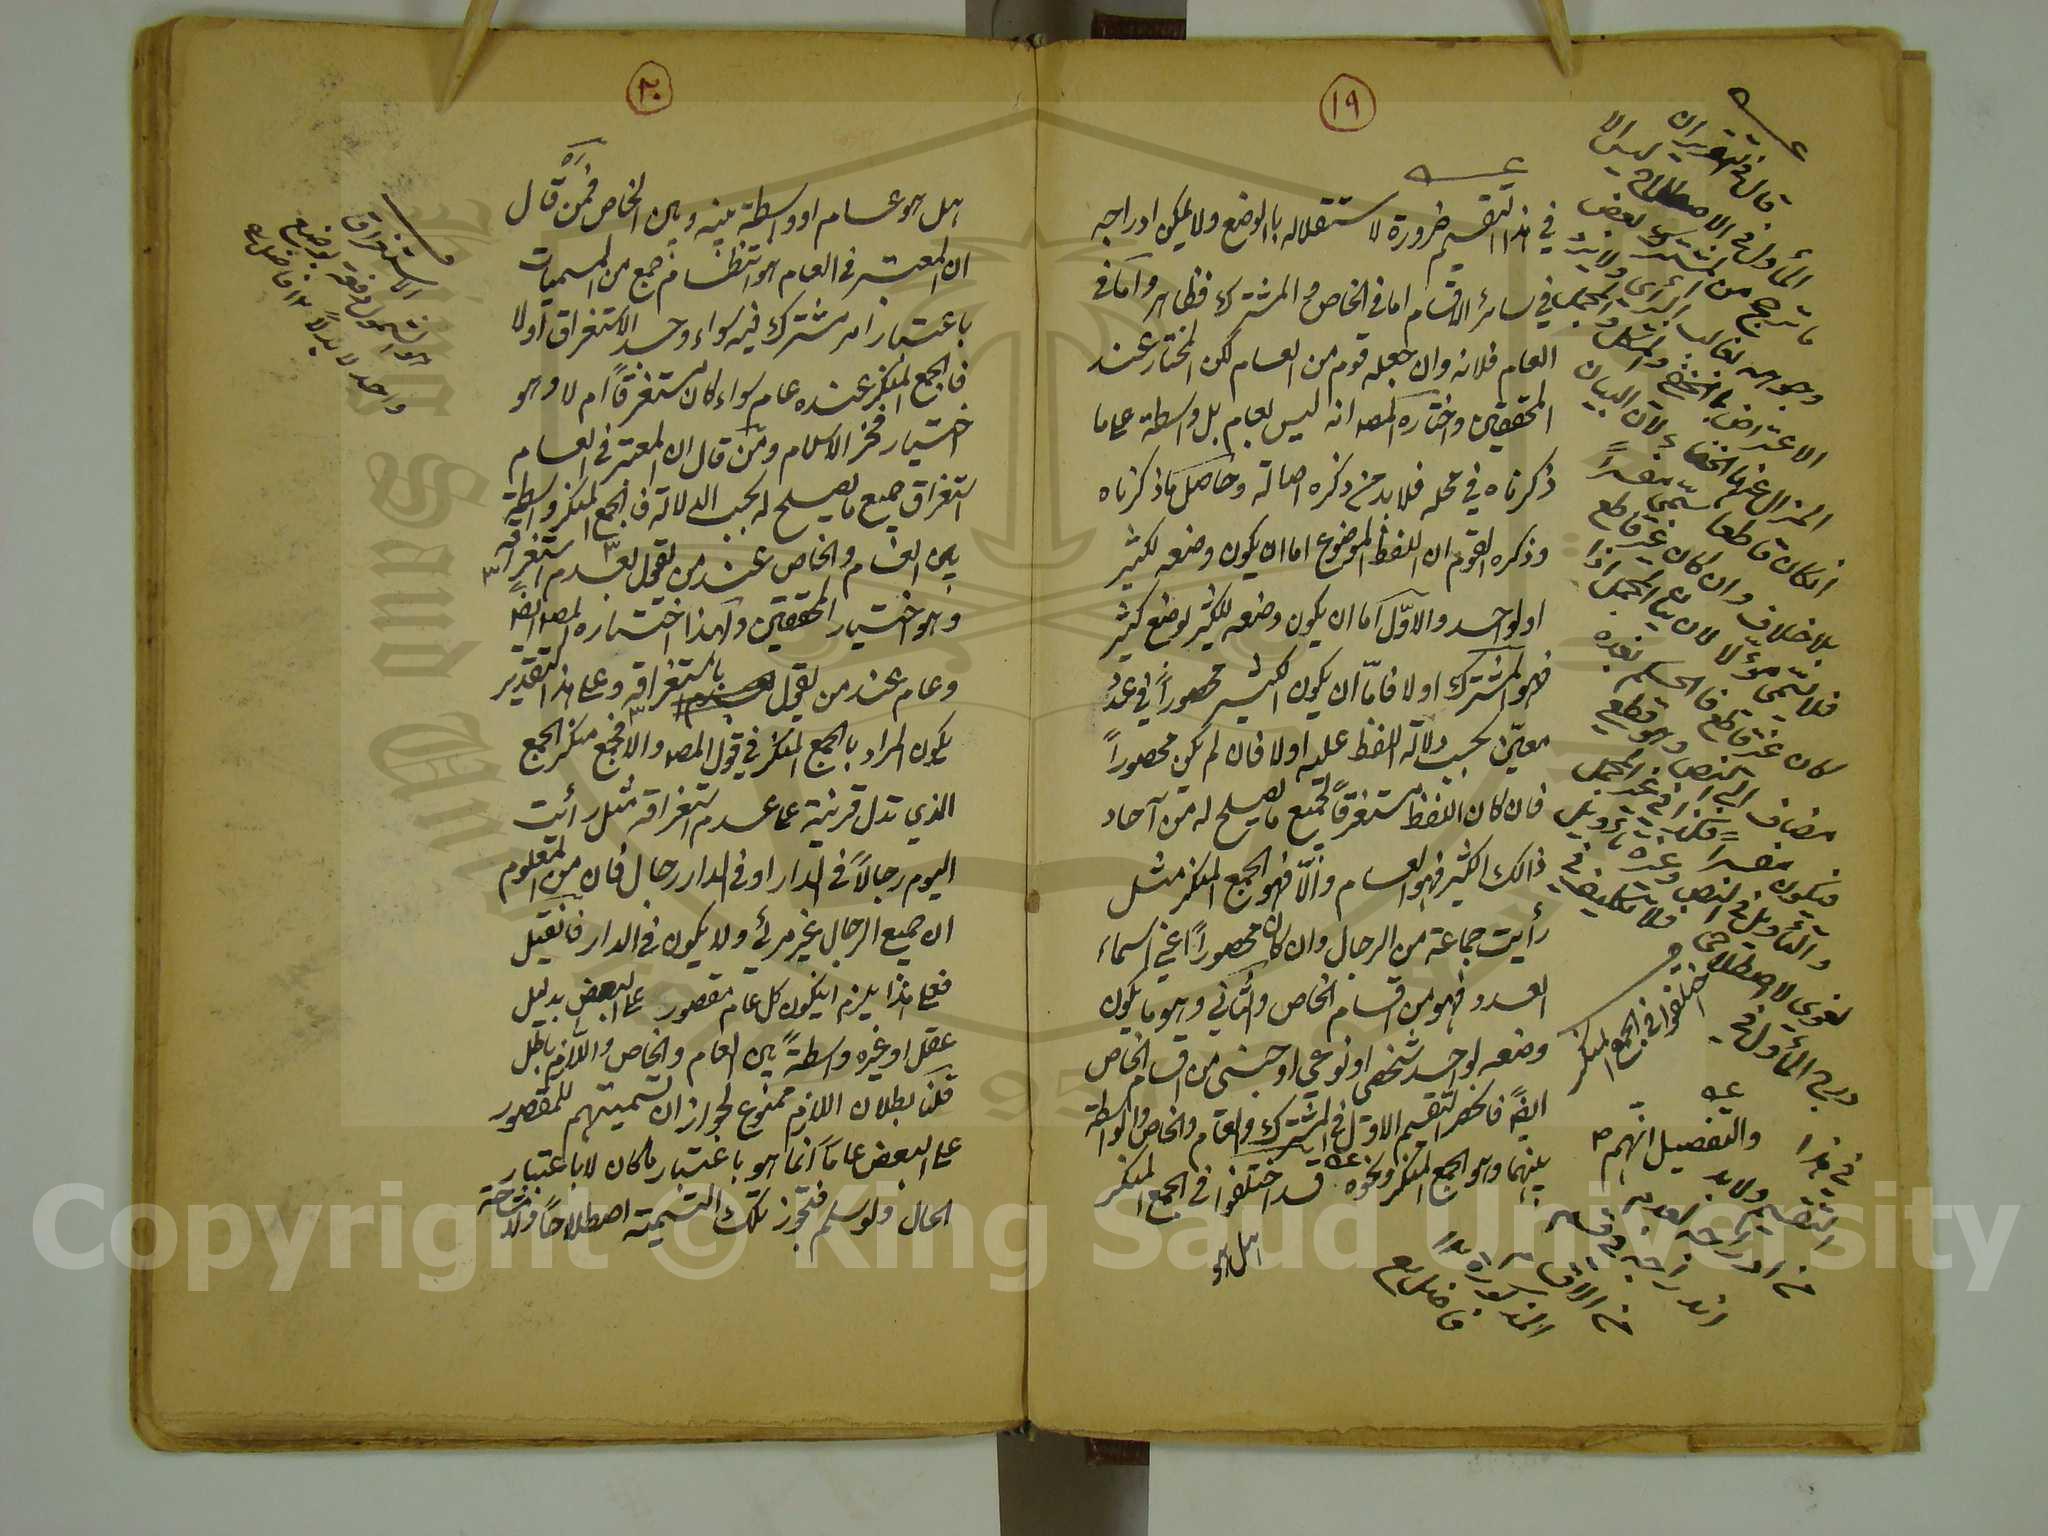 ١٩
في هذا التقسيم ضرورة لاستقلاله بالوضع ولا يمكن ادراجه
في سائر الاقسام اما في الخاص و المشترك فظاهر واما في
العام فلانه وان جعله قوم من العام لكن المختار عند
المحققين واختاره المصه انه ليس بعام بل واسطة على ما
ذكرناه في محله فلا بد من ذكره اصالة وحاصل ما ذكرناه
وذكره القوم ان اللفظ الموضوع اما ان يكون وضعه لكثير
او لواحد والاوّل اما ان يكون وضعه للكثير لوضع كثير
فهو المشترك او لا فامّا ان يكون الكثير محصوراً في عدد
معيّن بحسب دلالة اللفظ عليه او لا فان لم يكن محصوراً
فان كان اللفظ مستغرقاً لجميع ما يصلح له من آحاد
ذالك الكثير فهو العام والّا فهو الجمع المنكر مثل
رأيت جماعة من الرجال وان كان محصوراً اعني اسماء
العدد فهو من اقسام الخاص والثاني وهو ما يكون
وضعه لواحد شخصي او نوعي او جنسي من اقسام الخاص
ايضً فانحصر التقسيم الاوّل في المشترك والعام والخاص والواسطة
بينهما وهو الجمع المنكر ونحوه قد اختلفوا في الجمع المنكر
اهل هو
قال في التقريران
المأول في الاصطلاح ليس الا
ما ترجح من المشترك بعض
وجوهه بغالب الرأي ولا يرد
الاعتراض بالخفي والمشكل والمجمل
المزال عنها الخفاء لان البيان
انكان قاطعا سمّي مفسراً
بلا خلاف وان كان غير قاطع
فلا يسمى مؤلا لان بيان المجمل اذا
كان غير قاطع فالحكم بعده
مضاف الى النص وهو قطعي
فيكون مفسراً
والتأويل في النص وغيره تأويل
لغوي لا اصطلاحي فلا
اختلفوا في الجمع المنكر
والتفصيل انّهم
في هذا
التقسيم ولا بد
من ادراجه لعدم
اندراجه في قسم
من الاقسام
المذكورة
فاضل
٢٠
اهل هو عام او واسطة بينه وبين الخاص فمن قال
ان المعتبر في العام هو انتظام جمع من المسميات
باعتبار امر مشترك فيه سواء وجد الاستغراق او لا
فالجمع المنكر عنده عام سواء كان مستغرقاً ام لا وهو
اختيار فخر الاسلام ومن قال ان المعتبر في العام
استغراق جميع ما يصلح له بحسب الدلالة فالجمع المنكر واسطة
بين العام والخاص عند من يقول بعدم استغراقه
وهو اختيار المحققين ولهذا اختاره المصه ايضً
وعام عند من يقول باستغراقه وعلى هذا التقدير
يكون المراد بالجمع المنكر في قول المصه والا فجمع منكر الجمع
الذي تدل قرينة على عدم استغراقه مثل رأيت
اليوم رجالاً في الدار او في الدار رجال فان من المعلوم
ان جميع الرجال غير مرئي ولا يكون في الدار فان قيل
فعلى هذا يلزم ان يكون كل عام مقصور على البعض بدليل
عقل او غيره واسطةً بين العام والخاص واللازم باطل
قلنا بطلان اللازم ممنوع لجواز ان تسميتهم للمقصور
على البعض عاماً انما هو باعتبار ما كان لا باعتبار
الحال ولو سلم فتجوز تلك التسمية اصطلاحاً ولا مشاحة
الاستغراق
هو الشمول دفعة بوضع
واحد لا بدلاً